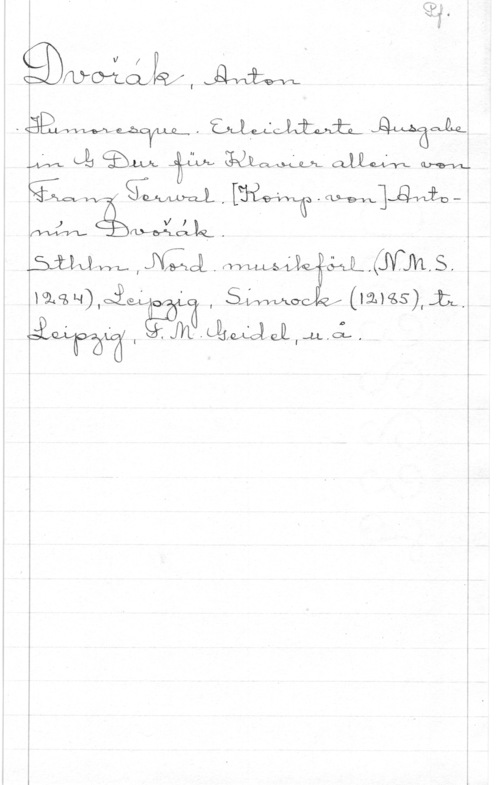 Pf.
Dvořák, Anton
Humoresque. Erleichterte Ausgabe
in G Dur für Klavier allein von
Franz Terwal. [Komp. von] Anto-
nín Dvořák.
Sthlm, Nord. musikförl. (N.M.S.
1284), Leipzig, Simrock (12185), tr.
Leipzig, F. M. Geidel, u.å.